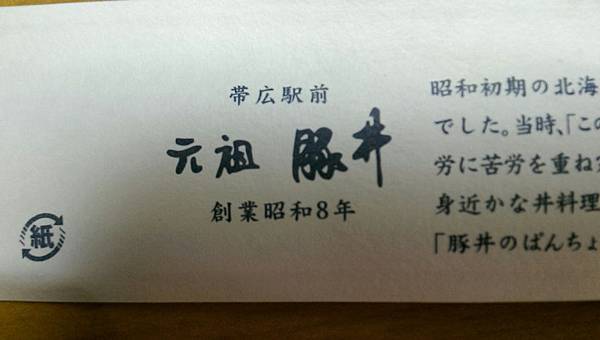 帯広駅前
元祖 豚丼
創業昭和8年
紙
昭和初期の北海
でした。当時、「この
労に苦労を重ね
身近かな丼料理
「豚丼のぱんちょ